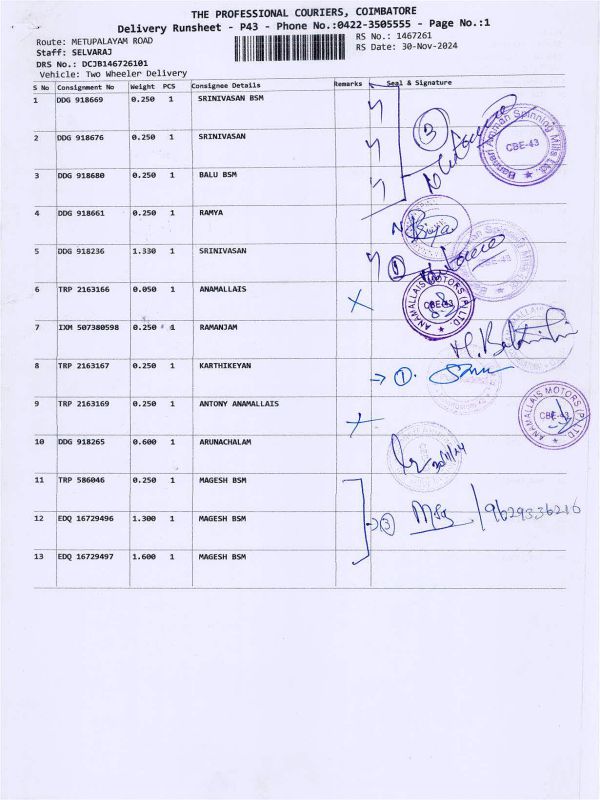 THE PROFESSIONAL COURIERS, COIMBATORE
Delivery Runsheet - P43 - Phone No.:0422-3505555 - Page No.:1
Route: METUPALAYAM ROAD
RS No.: 1467261
Staff: SELVARAJ
RS Date: 30-Nov-2024
DRS No.: DCJB146726101
Vehicle: Two Wheeler Delivery
S No Consignment No Weight PCS Consignee Details Remarks Seal & Signature
1 DDG 918669 0.250 1 SRINIVASAN BSM
2 DDG 918676 0.250 1 SRINIVASAN
3 DDG 918680 0.250 1 BALU BSM
4 DDG 918661 0.250 1 RAMYA
5 DDG 918236 1.330 1 SRINIVASAN
6 TRP 2163166 0.050 1 ANAMALLAIS
7 IXM 507380598 0.250 1 RAMANJAM
8 TRP 2163167 0.250 1 KARTHIKEYAN
9 TRP 2163169 0.250 1 ANTONY ANAMALLAIS
10 DDG 918265 0.600 1 ARUNACHALAM
11 TRP 586046 0.250 1 MAGESH BSM
12 EDQ 16729496 1.300 1 MAGESH BSM
13 EDQ 16729497 1.600 1 MAGESH BSM
3
Bannari Amman Spinning Mills Ltd.
CBE-43
1
ANAMALLAIS MOTORS (P) LTD.
CBE-43
1
ANAMALLAIS MOTORS (P) LTD.
CBE-43
30/11/24
3
9629336216